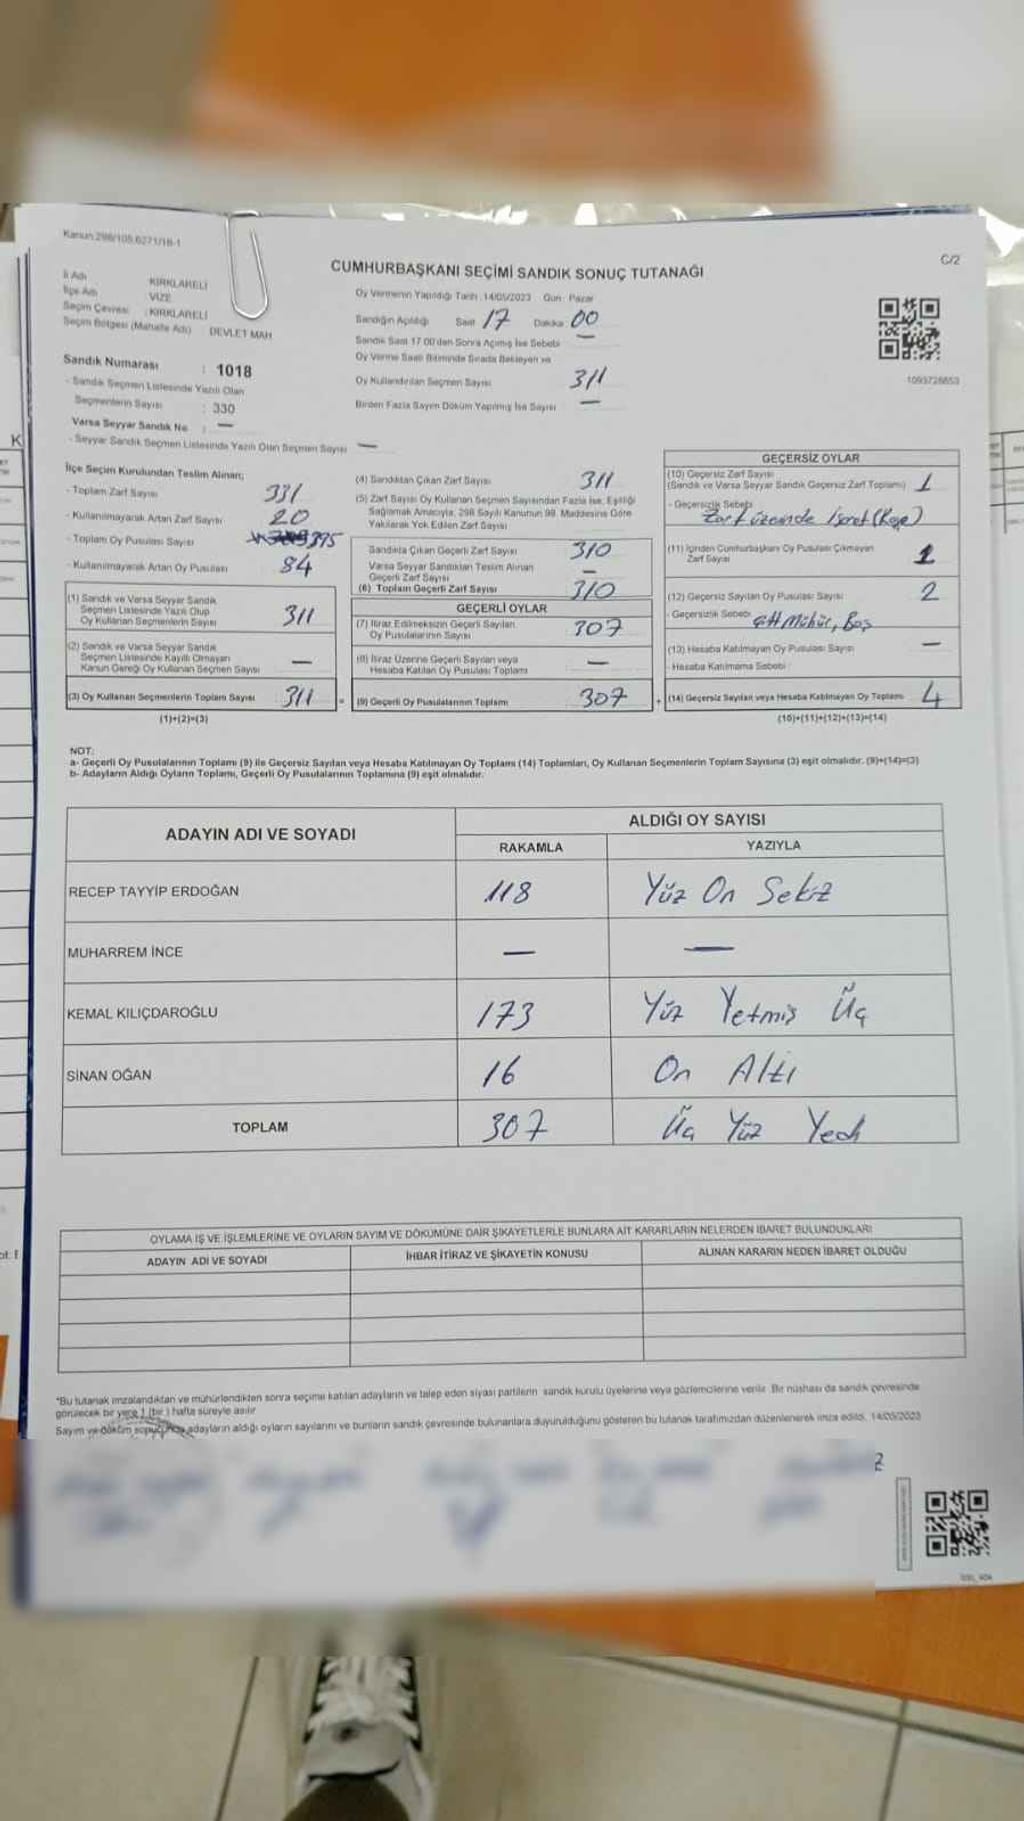 Kanun 298/105,6271/18-1
C/2
CUMHURBAŞKANI SEÇİMİ SANDIK SONUÇ TUTANAĞI
İl Adı KIRKLARELİ
İlçe Adı VİZE
Seçim Çevresi : KIRKLARELİ
Seçim Bölgesi (Mahalle Adı) DEVLET MAH
Oy Vermenin Yapıldığı Tarih :14/05/2023 Gün : Pazar
Sandığın Açıldığı Saat 17 Dakika 00
Sandık Saat 17.00'den Sonra Açılmış İse Sebebi —
Oy Verme Saati Bitiminde Sırada Bekleyen ve
Oy Kullandırılan Seçmen Sayısı 311
Birden Fazla Sayım Döküm Yapılmış İse Sayısı —
1093728853
Sandık Numarası : 1018
- Sandık Seçmen Listesinde Yazılı Olan
Seçmenlerin Sayısı : 330
Varsa Seyyar Sandık No : —
- Seyyar Sandık Seçmen Listesinde Yazılı Olan Seçmen Sayısı —
İlçe Seçim Kurulundan Teslim Alınan;
- Toplam Zarf Sayısı 331
- Kullanılmayarak Artan Zarf Sayısı 20
- Toplam Oy Pusulası Sayısı 395
- Kullanılmayarak Artan Oy Pusulası 84
(1) Sandık ve Varsa Seyyar Sandık
Seçmen Listesinde Yazılı Olup
Oy Kullanan Seçmenlerin Sayısı 311
(2) Sandık ve Varsa Seyyar Sandık
Seçmen Listesinde Kayıtlı Olmayan
Kanun Gereği Oy Kullanan Seçmen Sayısı —
(3) Oy Kullanan Seçmenlerin Toplam Sayısı 311 =
(1)+(2)=(3)
(4) Sandıktan Çıkan Zarf Sayısı 311
(5) Zarf Sayısı Oy Kullanan Seçmen Sayısından Fazla İse, Eşitliği
Sağlamak Amacıyla, 298 Sayılı Kanunun 98. Maddesine Göre
Yakılarak Yok Edilen Zarf Sayısı
Sandıkta Çıkan Geçerli Zarf Sayısı 310
Varsa Seyyar Sandıktan Teslim Alınan
Geçerli Zarf Sayısı —
(6) Toplam Geçerli Zarf Sayısı 310
GEÇERLİ OYLAR
(7) İtiraz Edilmeksizin Geçerli Sayılan
Oy Pusulalarının Sayısı 307
(8) İtiraz Üzerine Geçerli Sayılan veya
Hesaba Katılan Oy Pusulası Toplamı —
(9) Geçerli Oy Pusulalarının Toplamı 307 +
GEÇERSİZ OYLAR
(10) Geçersiz Zarf Sayısı
(Sandık ve Varsa Seyyar Sandık Geçersiz Zarf Toplamı) 1
- Geçersizlik Sebebi
Zarf üzerinde İşaret (Kaşe)
(11) İçinden Cumhurbaşkanı Oy Pusulası Çıkmayan
Zarf Sayısı 1
(12) Geçersiz Sayılan Oy Pusulası Sayısı 2
- Geçersizlik Sebebi Çift Mühür, Boş
(13) Hesaba Katılmayan Oy Pusulası Sayısı —
- Hesaba Katılmama Sebebi
(14) Geçersiz Sayılan veya Hesaba Katılmayan Oy Toplamı 4
(10)+(11)+(12)+(13)=(14)
NOT:
a- Geçerli Oy Pusulalarının Toplamı (9) ile Geçersiz Sayılan veya Hesaba Katılmayan Oy Toplamı (14) Toplamları, Oy Kullanan Seçmenlerin Toplam Sayısına (3) eşit olmalıdır. (9)+(14)=(3)
b- Adayların Aldığı Oyların Toplamı, Geçerli Oy Pusulalarının Toplamına (9) eşit olmalıdır.
ADAYIN ADI VE SOYADI
ALDIĞI OY SAYISI
RAKAMLA YAZIYLA
RECEP TAYYİP ERDOĞAN 118 Yüz On Sekiz
MUHARREM İNCE — —
KEMAL KILIÇDAROĞLU 173 Yüz Yetmiş Üç
SİNAN OĞAN 16 On Altı
TOPLAM 307 Üç Yüz Yedi
OYLAMA İŞ VE İŞLEMLERİNE VE OYLARIN SAYIM VE DÖKÜMÜNE DAİR ŞİKAYETLERLE BUNLARA AİT KARARLARIN NELERDEN İBARET BULUNDUKLARI
ADAYIN ADI VE SOYADI İHBAR İTİRAZ VE ŞİKAYETİN KONUSU ALINAN KARARIN NEDEN İBARET OLDUĞU
*Bu tutanak imzalandıktan ve mühürlendikten sonra seçime katılan adayların ve talep eden siyasi partilerin sandık kurulu üyelerine veya gözlemcilerine verilir. Bir nüshası da sandık çevresinde
görülecek bir yere 1 (bir ) hafta süreyle asılır
Sayım ve döküm sonucunda adayların aldığı oyların sayılarını ve bunların sandık çevresinde bulunanlara duyurulduğunu gösteren bu tutanak tarafımızdan düzenlenerek imza edildi. 14/05/2023